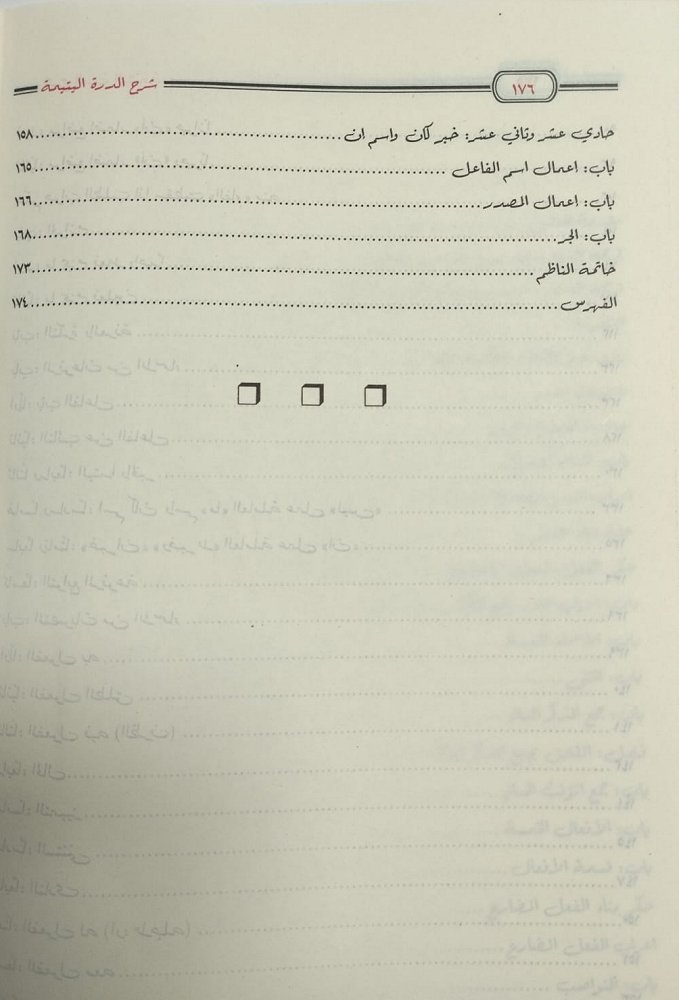 ١٧٦ شرح الدرة اليتيمة
حادي عشر وثاني عشر: خبر كان واسم ان ١٥٨
باب: اعمال اسم الفاعل ١٦٥
باب: اعمال المصدر ١٦٦
باب: الجر ١٦٨
خاتمة الناظم ١٧٣
الفهرس ١٧٤